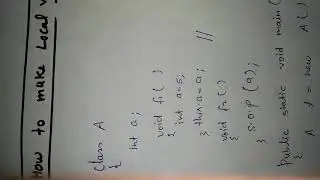 How to make Local
Class A
{
int a;
void f1( )
{ int a=5;
} this.a=a; //
void f2( )
{ S.O.P (a);
}
Public static void main (
{ A
= new A( )